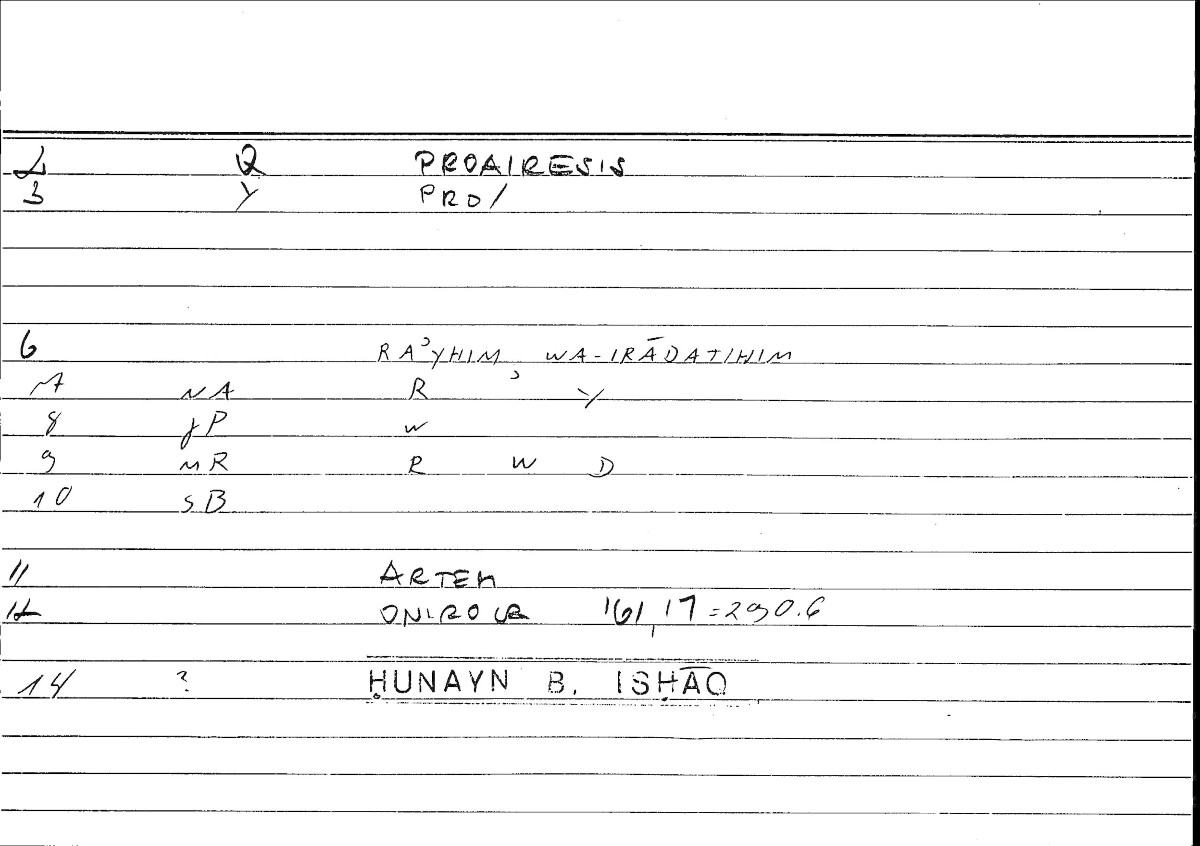 2 Q PROAIRESIS
3 Y PRO/
6 RAʾYHIM, WA-IRĀDATIHIM
7 NA R ʾ Y
8 JP W
9 MR R W D
10 SB
11 ARTEM
12 ONIROCR 161,17=290.6
14 ? ḤUNAYN B. ISḤĀQ